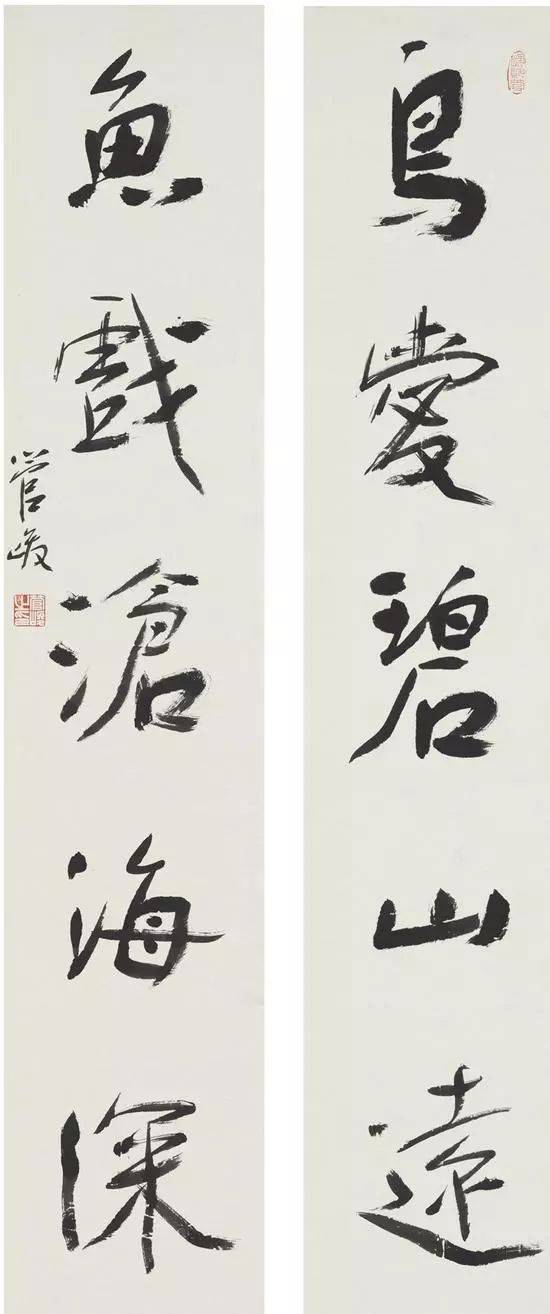 鳥愛碧山遠
魚戲滄海深
管峻